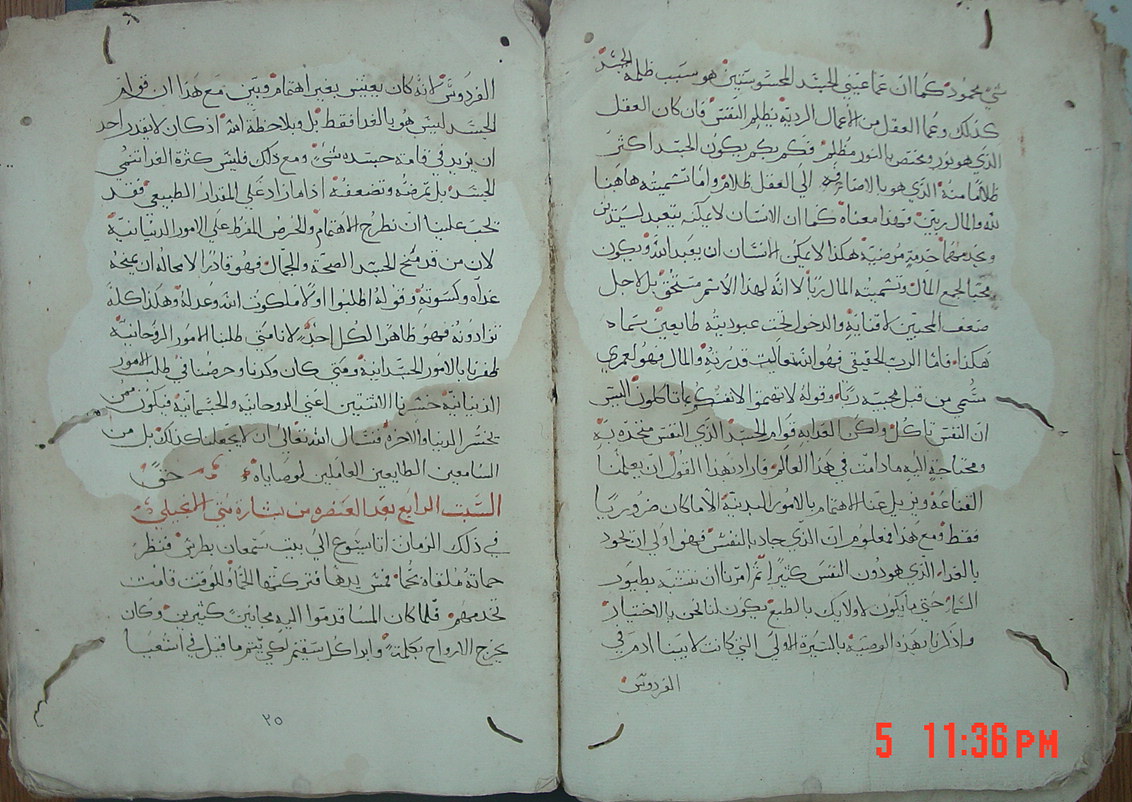 شي محمود كما ان عما عيني الجسد المحسوستين هو سبب ظلمة الجسد
كذلك وعما العقل من الاعمال الردية يظلم النفس فان كان العقل
الذي هو نور ومختص بالنور مظلم فكم بكم يكون الجسد اكثر
ظلاما منه الذي هو بالاضافه الى العقل ظلام واما تسميته هاهنا
لله والمال ربين فهذا معناه كما ان الانسان لا يمكنه يتعبد لسيدين
ويخدمهما خدمة مرضية هكذا لا يمكن الانسان ان يعبد الله ويكون
محبا لجمع المال وتسميته المال ربا لا انه لهذا الاسم مستحق بل لاجل
ضعف المحبين لاقتنايه والدخول تحت عبوديته طايعين سماه
هكذا فاما الرب الحقيقي فهو الله تعاليت قدرته والمال فهو لعمري
سمي من قبل محبيه ربا وقوله لا تهتموا لانفسكم بما تاكلون ليس
ان النفس تاكل ولكن الغذا به قوام الجسد الذي النفس متحده به
ومحتاجة اليه ما دامت في هذا العالم فاراد بهذا القول ان يعلمنا
القناعة ويزيل عنا الاهتمام بالامور البدنية الا ما كان ضروريا
فقط ومع هذا فمعلوم ان الذي جاد بالنفس فهو اولى ان يجود
بالغداء الذي هو دون النفس كثيرا ثم امرنا ان نتشبه بطيور
السماء حتى ما يكون لاولايك بالطبع يكون لنا نحن بالاختيار
واذكرنا بهذه الوصية بالسيرة الاولى التي كانت لابينا ادم في
الفردوس
الفردوس لانه كان يعيش بغير اهتمام وتبين مع هذا ان قوام
الجسد ليس هو بالغدا فقط بل وبملاحظة الله اذ كان لا يقدر احد
ان يزيد في قامة جسده شي ومع ذلك فليس كثرة الغدا تنمي
الجسد بل تمرضه وتضعفه اذا ما زاد على المقدار الطبيعي فقد
يجب علينا ان نطرح الاهتمام والحرص المفرط على الامور الدنيانية
لان من قد منح الجسد الصحة والجمال فهو قادرا لا محاله ان يمنحه
غداه وكسوته وقوله اطلبوا اولا ملكوت الله وعدله وهذا كله
تزادونه فهو ظاهرا لكل احد لانا متى طلبنا الامور الروحانية
ظفرنا بالامور الجسدانية ومتى كان وكدنا وحرصنا في طلب الامور
الدنيانية خسرنا الاثنتين اعني الروحانية والجسمانية فنكون ممن
يخسر الدنيا والاخرة فنسال الله تعالى ان لا يجعلنا كذلك بل من
السامعين الطايعين العاملين لوصاياه حق
السبت الرابع بعد العنصره من بشارة متى الانجيلي
في ذلك الزمان اتا يسوع الى بيت سمعان بطرس فنظر
حماته ملقاه بحما فمس يدها فتركتها الحما وللوقت قامت
تخدمهم فلما كان المسا قدموا اليه مجانين كثيرين وكان
يخرج الارواح بكلمة وابرا كل سقيم لكي يتم ما قيل في اشعيا
٢٥
5 11:36 PM